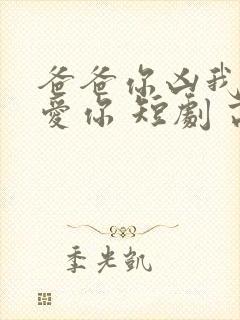 爸爸你凶我
愛你 短劇
季光凱